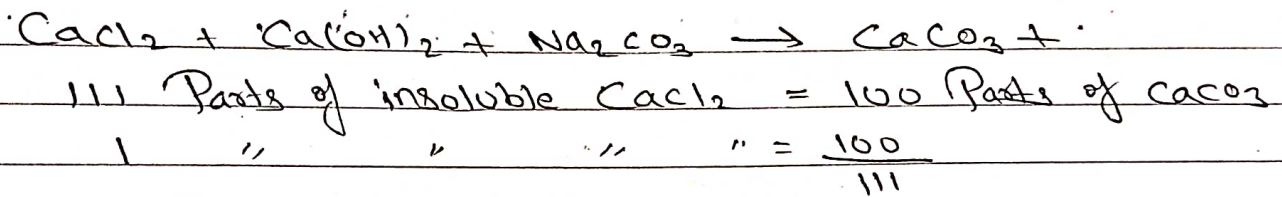 CaCl2 + Ca(OH)2 + Na2CO3 → CaCO3 +
111 Parts of insoluble CaCl2 = 100 Parts of CaCO3
1 " " " " = 100/111